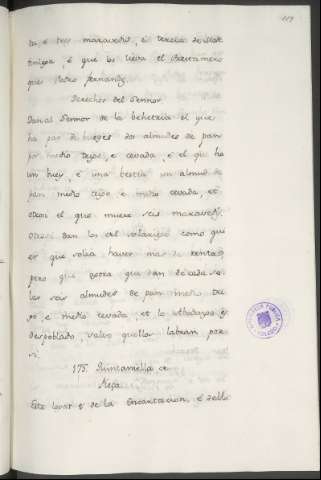 117
da, e tres maravedis, e tercia de
Amigos, e que los lieva el Betramero
que Pedro Fernandez
Derechos del Sennor
Dan al Sennor de la behetria el que
ha par de bueyes dos almudes de pan
por medio trigo, e cevada, e el que ha
un buey, e una bestia un almud de
pan medio trigo, e medio cevada, et
otrosi el que muere seis maravedis
otrosi dan los del solariego como que
er que solia haver mas de rentas
pero que agora que dan de cada so-
lar seis almudes de pan medio tri
go, e medio cevada, et lo al
despoblado, salvo quellos labran para
si.
175. Quintaniella, ce
Mega
Este logar es de la encartacion, e
BIBLIOTECA PUBLICA
TOLEDO